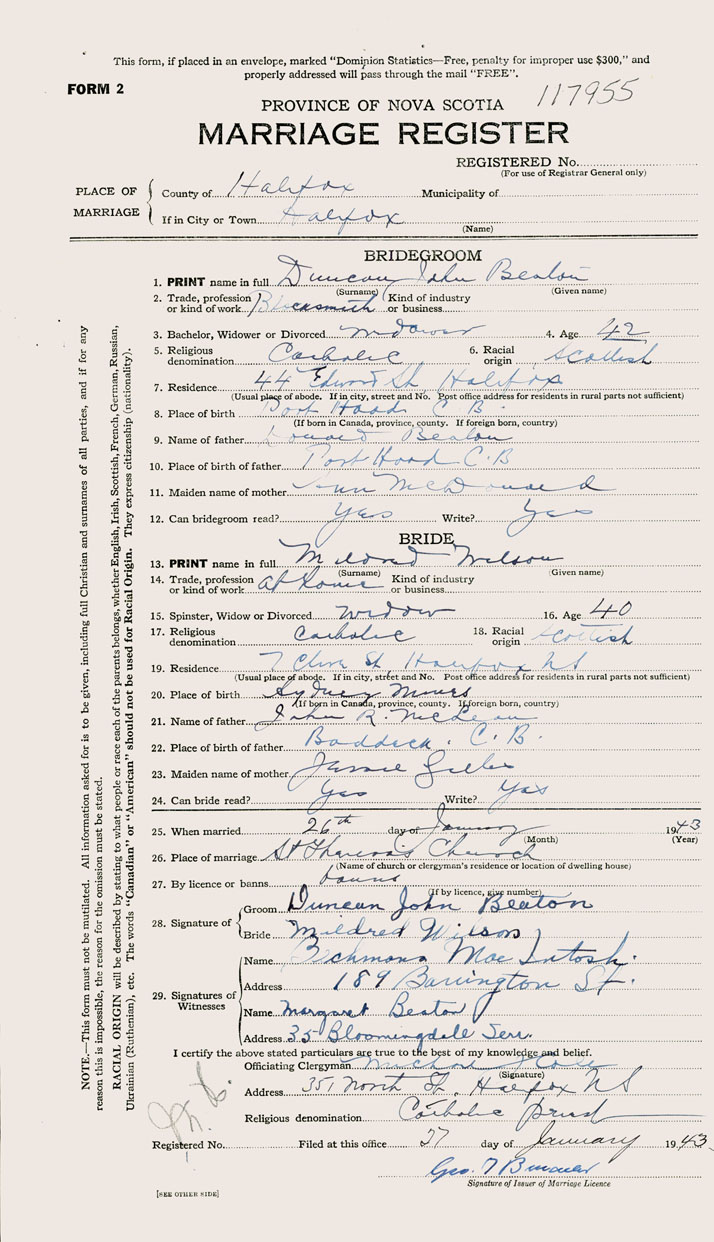 This form, if placed in an envelope, marked "Dominion Statistics—Free, penalty for improper use $300," and
properly addressed will pass through the mail "FREE".
FORM 2
117955
PROVINCE OF NOVA SCOTIA
MARRIAGE REGISTER
REGISTERED No.
(For use of Registrar General only)
PLACE OF MARRIAGE
County of Halifax Municipality of
If in City or Town Halifax
(Name)
BRIDEGROOM
1. PRINT name in full Duncan John Beaton
(Surname) (Given name)
2. Trade, profession or kind of work Blacksmith Kind of industry or business
3. Bachelor, Widower or Divorced Widower 4. Age 42
5. Religious denomination Catholic 6. Racial origin Scottish
7. Residence 44 Edward St Halifax
(Usual place of abode. If in city, street and No. Post office address for residents in rural parts not sufficient)
8. Place of birth Port Hood C B
(If born in Canada, province, county. If foreign born, country)
9. Name of father Beaton
10. Place of birth of father Port Hood C.B
11. Maiden name of mother Ann McDonald
12. Can bridegroom read? Yes Write? Yes
BRIDE
13. PRINT name in full Mildred Wilson
(Surname) (Given name)
14. Trade, profession or kind of work at home Kind of industry or business
15. Spinster, Widow or Divorced Widow 16. Age 40
17. Religious denomination Catholic 18. Racial origin Scottish
19. Residence 7 St Halifax NS
(Usual place of abode. If in city, street and No. Post office address for residents in rural parts not sufficient)
20. Place of birth Sydney Mines
(If born in Canada, province, county. If foreign born, country)
21. Name of father John R. McLean
22. Place of birth of father Baddeck. C. B.
23. Maiden name of mother Gillis
24. Can bride read? Yes Write? Yes
25. When married 26th day of January 1943
(Month) (Year)
26. Place of marriage St Theresa's Church
(Name of church or clergyman's residence or location of dwelling house)
27. By licence or banns banns
(If by licence, give number)
28. Signature of
Groom Duncan John Beaton
Bride Mildred Wilson
29. Signatures of Witnesses
Name Mac Intosh.
Address 189 Barrington St.
Name Margaret Beaton
Address 35 Bloomingdale Terr.
I certify the above stated particulars are true to the best of my knowledge and belief.
Officiating Clergyman
(Signature)
Address 351 North St. Halifax NS
Religious denomination Catholic Priest
Registered No. Filed at this office 27 day of January 1943
Geo.
Signature of Issuer of Marriage Licence
[SEE OTHER SIDE]
NOTE.—This form must not be mutilated. All information asked for is to be given, including full Christian and surnames of all parties, and if for any
reason this is impossible, the reason for the omission must be stated.
RACIAL ORIGIN will be described by stating to what people or race each of the parents belongs, whether English, Irish, Scottish, French, German, Russian,
Ukrainian (Ruthenian), etc. The words "Canadian" or "American" should not be used for Racial Origin. They express citizenship (nationality).